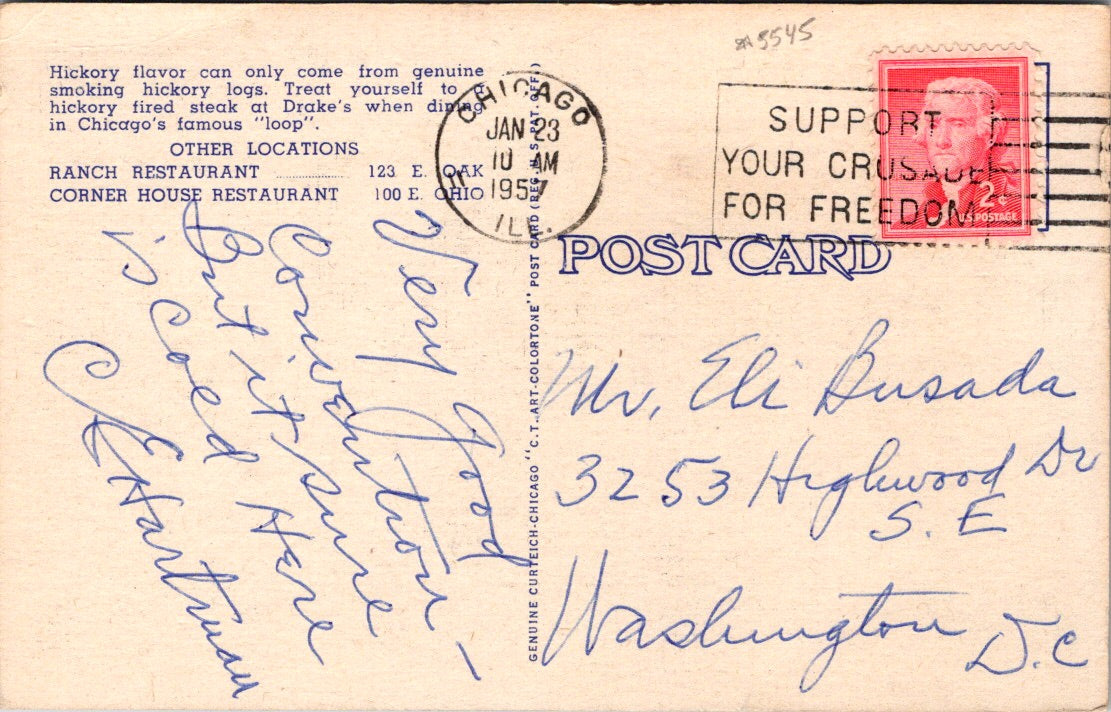 5545
Hickory flavor can only come from genuine
smoking hickory logs. Treat yourself to a
hickory fired steak at Drake's when dining
in Chicago's famous "loop".
OTHER LOCATIONS
RANCH RESTAURANT 123 E. OAK
CORNER HOUSE RESTAURANT 100 E. OHIO
CHICAGO
JAN 23
10 AM
1957
ILL.
SUPPORT
YOUR CRUSADE
FOR FREEDOM
2¢
U.S. POSTAGE
POST CARD
GENUINE CURTEICH-CHICAGO "C.T. ART-COLORTONE" POST CARD (REG. U. S. PAT. OFF.)
Very Good
Convention -
But it sure
is Coed Here
C E Hartman
Mr. Eli Busada
3253 Highwood Dr
S. E
Washington
D.C